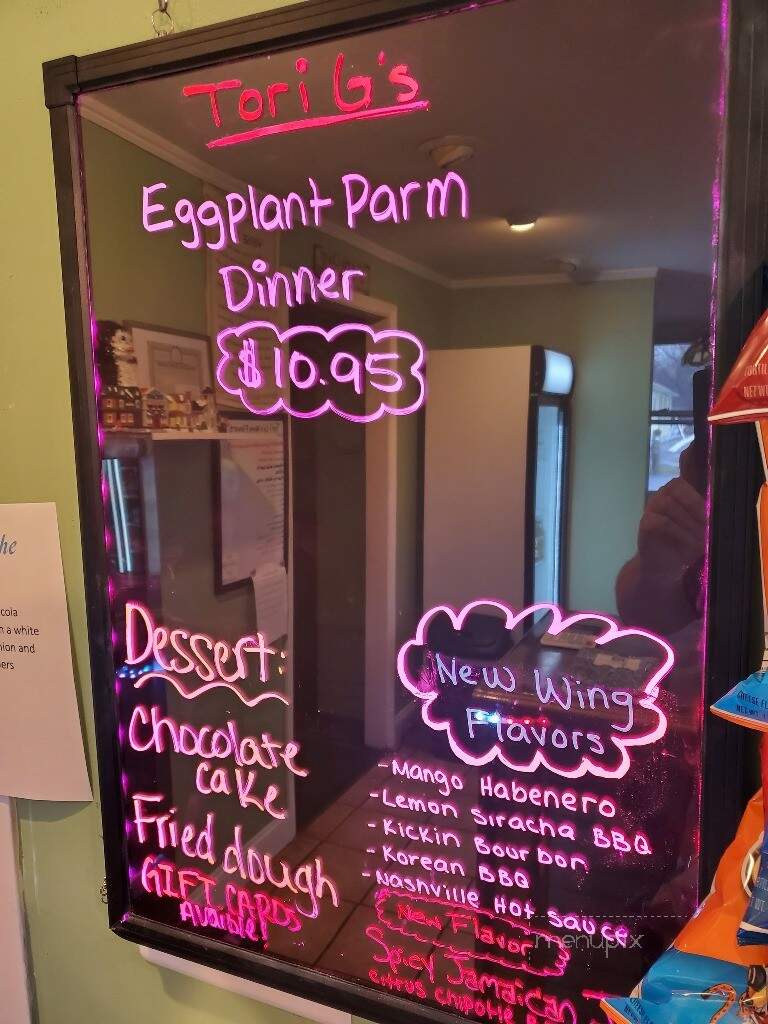 Tori G's
Eggplant Parm
Dinner
$10.95
Dessert:
Chocolate
cake
Fried dough
GIFT CARDS
New Wing
Flavors
-Mango Habenero
-Lemon Siracha BBQ
-Kickin Bourbon
-Korean BBQ
-Nashville Hot Sauce
New Flavor
Spicy Jamaican
citrus chipotle
menupix
he
cola
n a white
nion and
ers